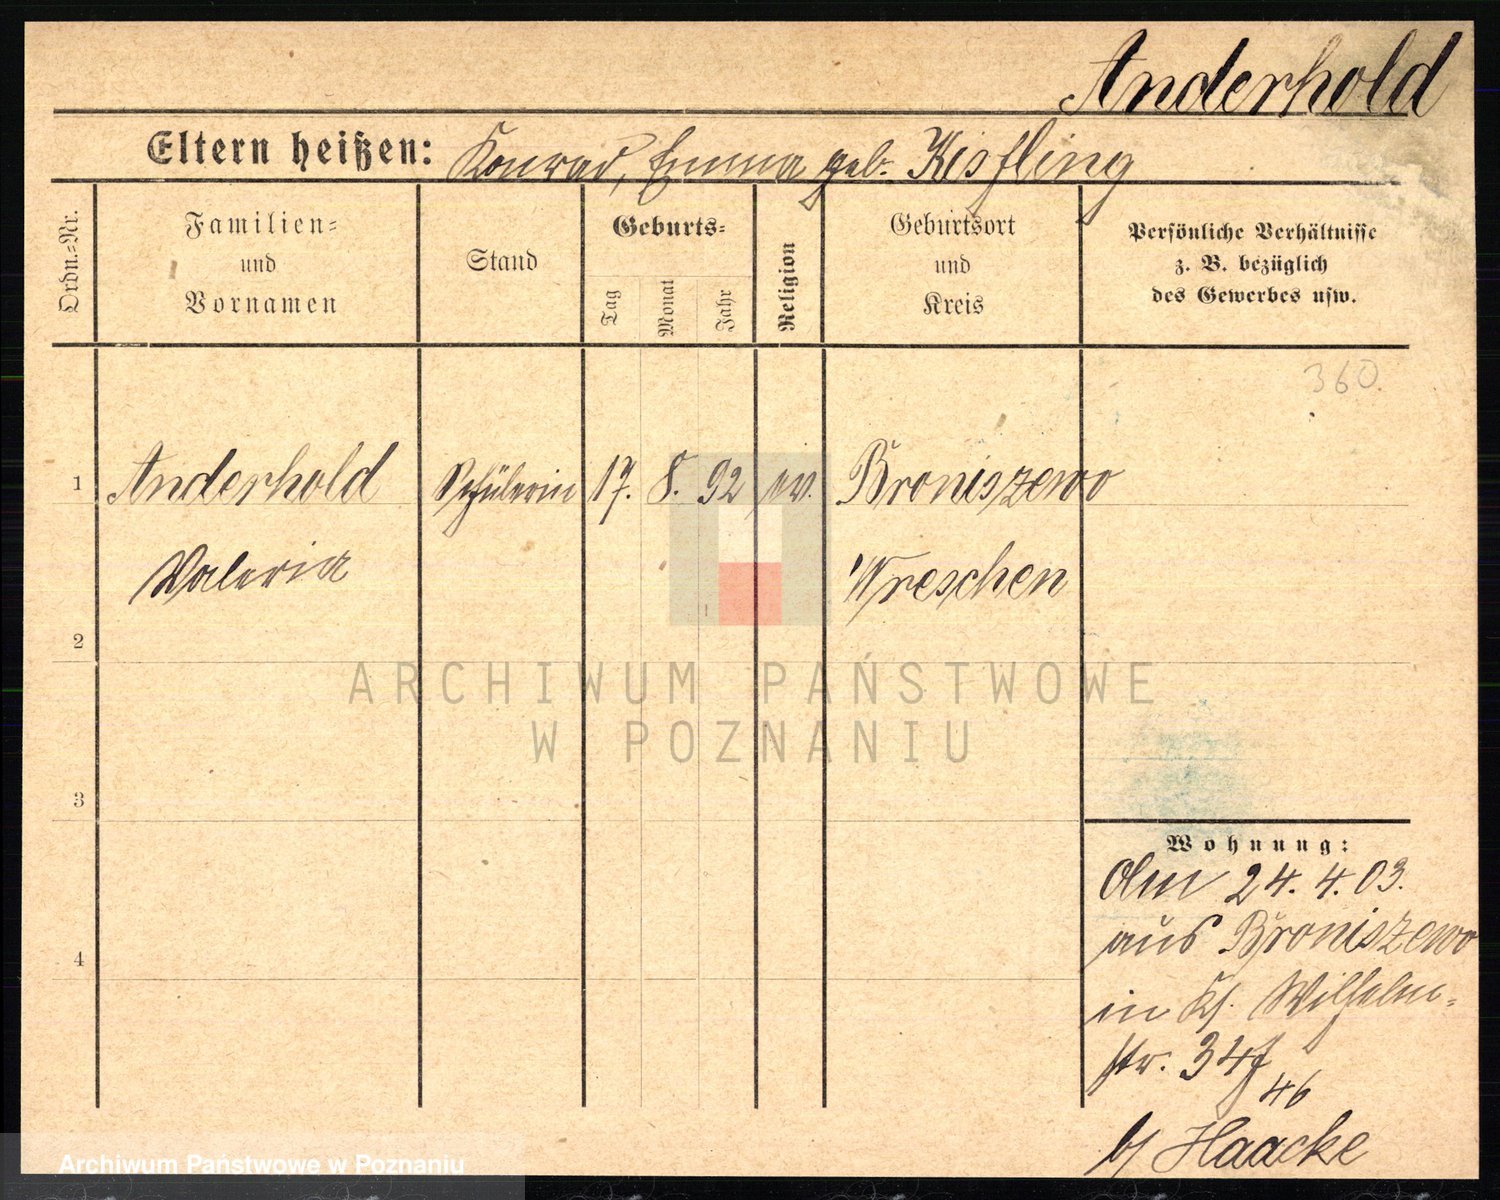 Anderhold
Eltern heißen: Konrad, Emma geb. Kißling
Ordn.-Nr.
Familien- und Vornamen
Stand
Geburts-
Tag
Monat
Jahr
Religion
Geburtsort und Kreis
Persönliche Verhältnisse
z. B. bezüglich
des Gewerbes usw.
360.
1 Anderhold Schülerin 17. 8. 92 ev. Broniszewo
Valeria Wreschen
2
ARCHIWUM PAŃSTWOWE
W POZNANIU
3
Wohnung:
Am 24. 4. 03.
aus Broniszewo
4
in Kl. Wilhelm-
str. 34
46
b/ Haacke
Archiwum Państwowe w Poznaniu